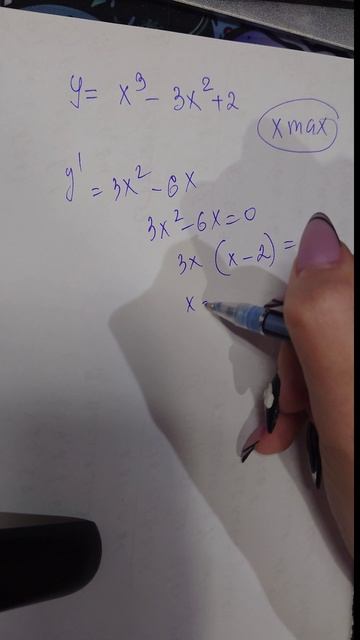 y = x³ - 3x² + 2
x max
y' = 3x² - 6x
3x² - 6x = 0
3x (x - 2) =
x =